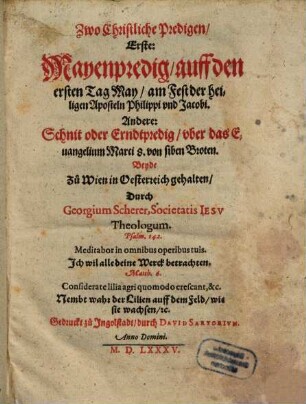 Zwo Christliche Predigen/
Erste:
Mayenpredig/ auff den
ersten Tag May/ am Fest der hei-
ligen Aposteln Philippi vnd Jacobi.
Andere:
Schnit oder Erndtpredig/ vber das E-
uangelium Marci 8. von siben Broten.
Beyde
Zů Wien in Oesterreich gehalten/
Durch
Georgium Scherer, Societatis IESV
Theologum.
Psalm. 142.
Meditabor in omnibus operibus tuis.
Ich wil alle deine Werck betrachten.
Matth. 6.
Considerate lilia agri quomodo crescunt, &c.
Nembt wahr der Lilien auff dem Feld/ wie
sie wachsen/ ꝛc.
Gedruckt zů Ingolstadt/ durch DAVID SARTORIVM.
Anno Domini.
M. D. LXXXV.